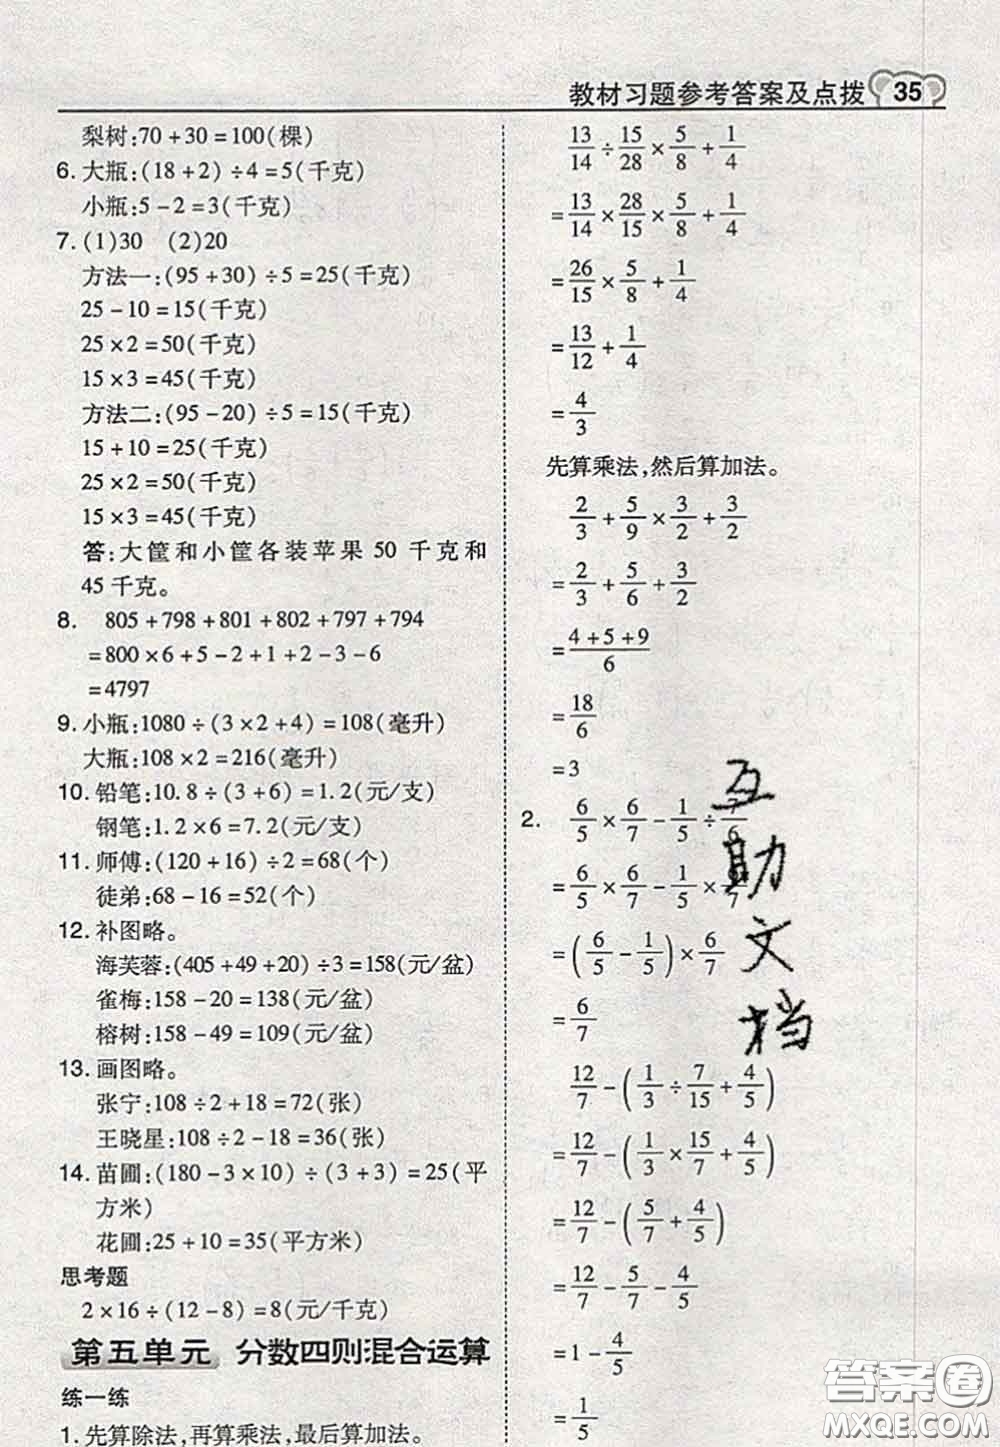 教材习题参考答案及点拨 35
梨树:70+30=100(棵)
6. 大瓶:(18+2)÷4=5(千克)
小瓶:5-2=3(千克)
7. (1)30 (2)20
方法一:(95+30)÷5=25(千克)
25-10=15(千克)
25×2=50(千克)
15×3=45(千克)
方法二:(95-20)÷5=15(千克)
15+10=25(千克)
25×2=50(千克)
15×3=45(千克)
答:大筐和小筐各装苹果 50 千克和
45 千克。
8. 805+798+801+802+797+794
=800×6+5-2+1+2-3-6
=4797
9. 小瓶:1080÷(3×2+4)=108(毫升)
大瓶:108×2=216(毫升)
10. 铅笔:10.8÷(3+6)=1.2(元/支)
钢笔:1.2×6=7.2(元/支)
11. 师傅:(120+16)÷2=68(个)
徒弟:68-16=52(个)
12. 补图略。
海芙蓉:(405+49+20)÷3=158(元/盆)
雀梅:158-20=138(元/盆)
榕树:158-49=109(元/盆)
13. 画图略。
张宁:108÷2+18=72(张)
王晓星:108÷2-18=36(张)
14. 苗圃:(180-3×10)÷(3+3)=25(平
方米)
花圃:25+10=35(平方米)
思考题
2×16÷(12-8)=8(元/千克)
第五单元 分数四则混合运算
练一练
1. 先算除法,再算乘法,最后算加法。
13/14÷15/28×5/8+1/4
=13/14×28/15×5/8+1/4
=26/15×5/8+1/4
=13/12+1/4
=4/3
先算乘法,然后算加法。
2/3+5/9×3/2+3/2
=2/3+5/6+3/2
=(4+5+9)/6
=18/6
=3
2. 6/5×6/7-1/5÷7/6
=6/5×6/7-1/5×6/7
=(6/5-1/5)×6/7
=6/7
12/7-(1/3÷7/15+4/5)
=12/7-(1/3×15/7+4/5)
=12/7-(5/7+4/5)
=12/7-5/7-4/5
=1-4/5
=1/5
互
助
文
档
答案圈
MXQE.COM